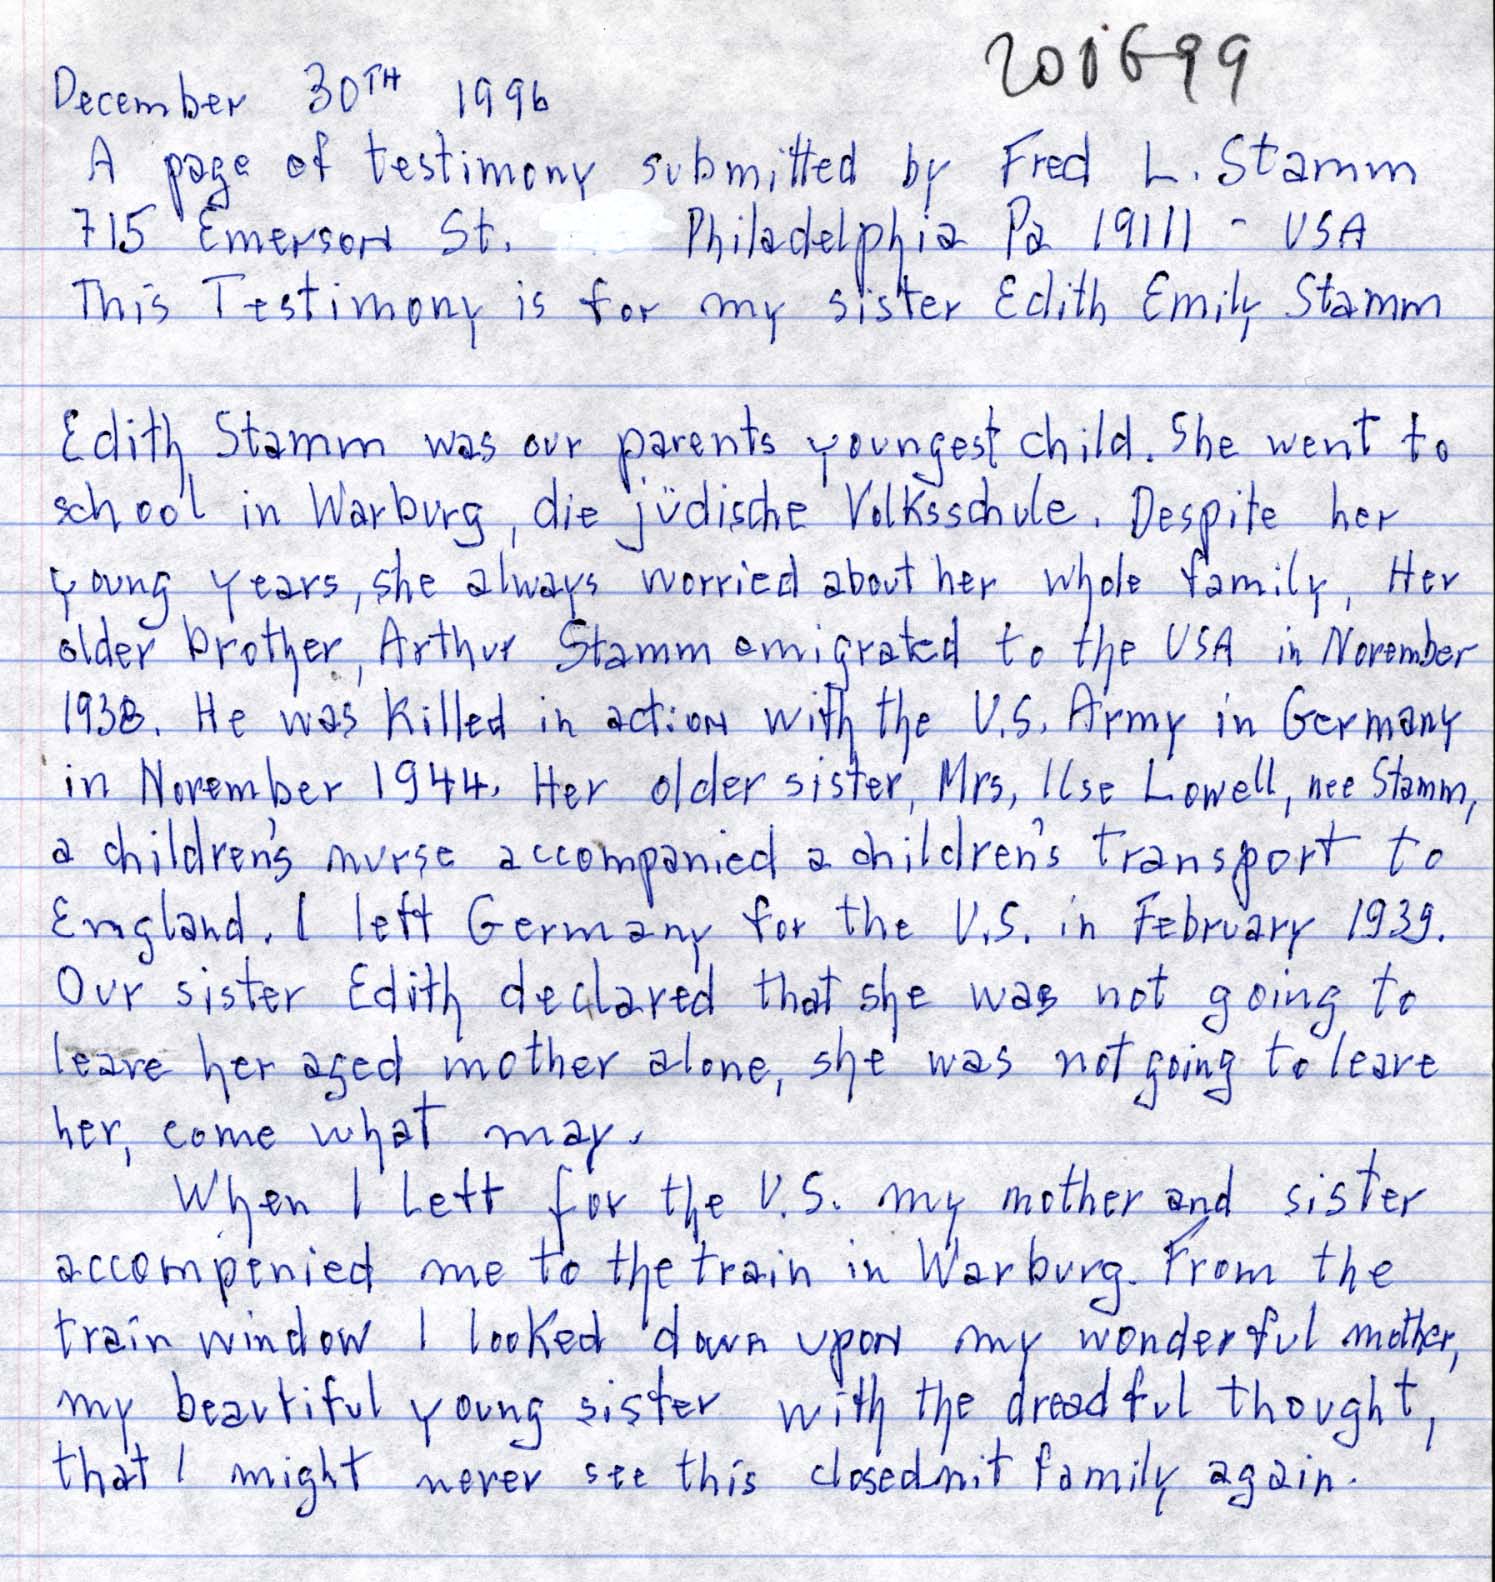 201699
December 30TH 1996
A page of testimony submitted by Fred L. Stamm
715 Emerson St. Philadelphia Pa 19111 - USA
This Testimony is for my sister Edith Emily Stamm
Edith Stamm was our parents youngest child. She went to
school in Warburg, die jüdische Volksschule. Despite her
young years, she always worried about her whole family, Her
older brother, Arthur Stamm emigrated to the USA in November
1938. He was killed in action with the U.S. Army in Germany
in November 1944. Her older sister, Mrs, Ilse Lowell, nee Stamm,
a children's nurse accompanied a children's transport to
England. I left Germany for the U.S. in February 1939.
Our sister Edith declared that she was not going to
leave her aged mother alone, she was not going to leave
her, come what may.
When I left for the U.S. my mother and sister
accompenied me to the train in Warburg. From the
train window I looked down upon my wonderful mother,
my beautiful young sister with the dreadful thought,
that I might never see this closednit family again.